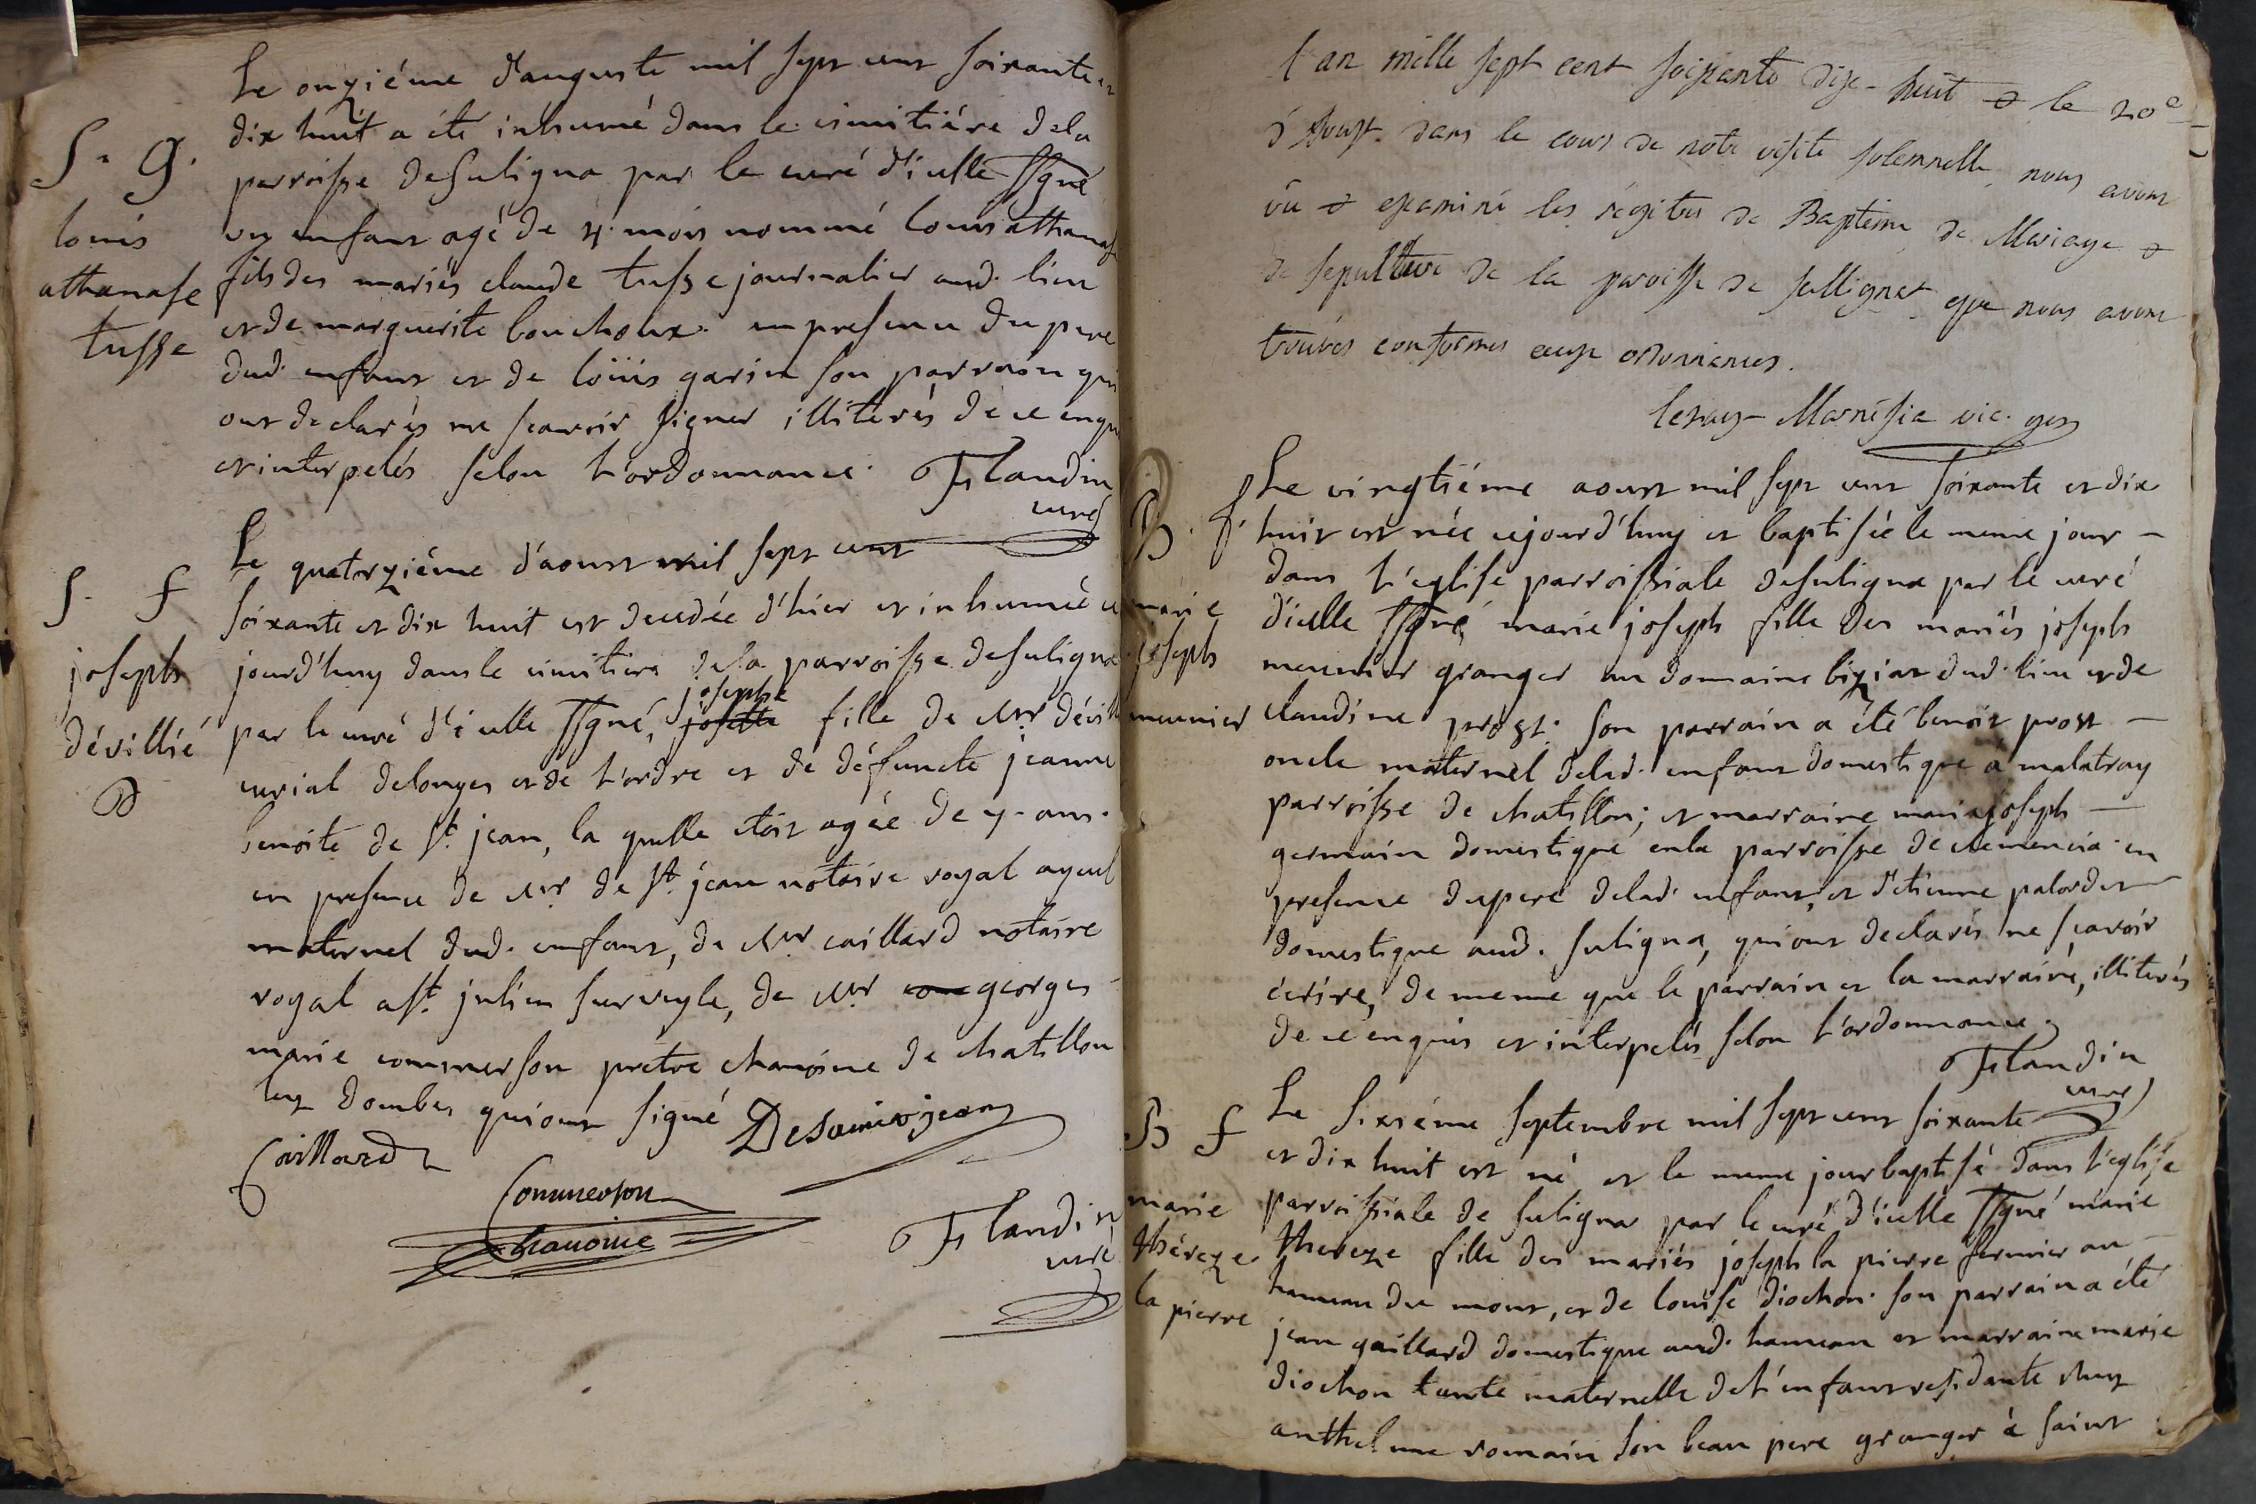 Le onziéme d'auguste mil sept cent soixante et
dix huit a été inhumé dans le cimitiére dela
S. G. parroisse de Suligna par le curé d'icelle ssgné
louis un enfant agé de 4. mois nommé louis athanase
athanase fils des mariés claude tusse journalier aud. lieu
tusse et de marguerite bouchoux. en presence du pere
dud. enfant et de loüis garin son parrain qui
ont declarés ne scavoir signer illiterés de ce enquis
et interpelés selon l'ordonnance. Flandin
curé
Le quatorziéme d'aoust mil sept cent
S. f soixante et dix huit est decedée d'hier et inhumée ce
joseph jourd'huy dans le cimitiere dela parroisse de Suligna
josephe
dévillié par le curé d'icelle ssgné, josette fille de Mr dévill
curial delonges et de l'ordre et de défuncte jeanne
benoite de St. jean, la quelle étoit agée de y. ans.
en presence de Mr. de St. jean notaire royal ayeul
maternel dud. enfant, de Mr. caillard notaire
royal a St. julien sur veyle, de Mr georges
marie commerson pretre chanoine de chatillon
les dombes qui ont signé Desaintjean
Caillard
Commerson
chanoine
Flandin
curé
l'an mille sept cent soixante dix-huit & le 20e
d'Aoust. dans le cours de notre visite solemnelle, nous avons
vû & examiné les régitres de Baptême de Mariage &
de sepulture de la paroisse de sulligna que nous avons
trouvés conformes aux ordonnances.
lezay-Marnésia vic. gen
Le vingtiéme aoust mil sept cent soixante et dix
B. f. huit est née cejourd'huy et baptisée le meme jour -
dans l'eglise parroissiale de Suligna par le curé
marie d'icelle ssgné, marie joseph fille des mariés joseph
joseph meunier granger au domaine biziat dud. lieu et de
meunier claudine prost. son parrain a été benoit prost -
oncle maternel delad. enfant domestique a malatray
parroisse de chatillon; et marraine marie joseph -
germain domestique enla parroisse de clemencia. en
presence du pere delad. enfant, et d'etienne palordet
domestique aud. Suligna, qui ont declarés ne sçavoir
écrire, de meme que le parrain et la marraine, illiterés
de ce enquis et interpelés selon l'ordonnance.
Flandin
curé
Le sixiéme septembre mil sept cent soixante
B f et dix huit est né et le meme jour baptisé dans l'eglise
marie parroissiale de Suligna par le curé d'icelle ssgné marie
théreze thereze fille des mariés joseph la pierre fermier au -
la pierre hameau du mont, et de louise diochon. son parrain a été
jean gaillard domestique aud. hameau et marraine marie
diochon tante maternelle de l'enfant residante chez
anthelme romain son beau pere granger à saint